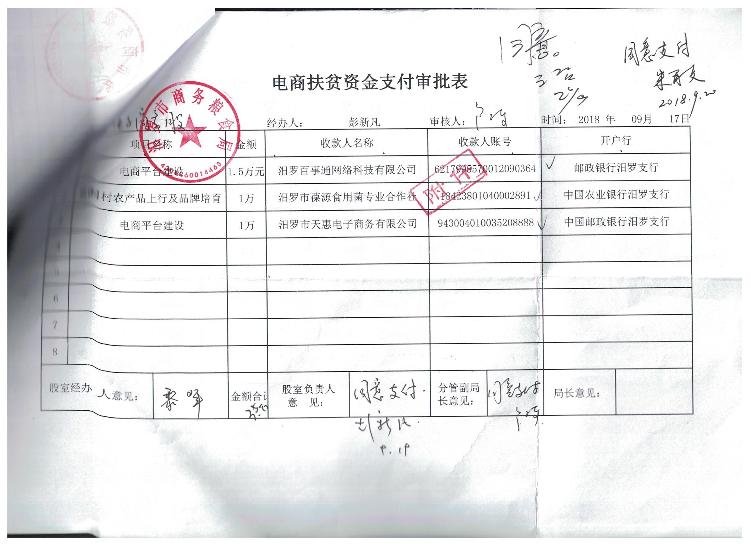 同意支付
2018.9.20
电商扶贫资金支付审批表
经办人： 彭新凡 审核人： 时间： 2018 年 09月 17日
项目名称 金额 收款人名称 收款人账号 开户行
电商平台建设 1.5万元 汨罗百事通网络科技有限公司 邮政银行汨罗支行
村农产品上行及品牌培育 1万 汨罗市葆源食用菌专业合作社 中国农业银行汨罗支行
电商平台建设 1万 汨罗市天惠电子商务有限公司 943004010035208888 中国邮政银行汨罗支行
附件
汨罗市商务粮食局
6
7
8
股室经办人意见： 金额合计 股室负责人意见： 同意支付 分管副局长意见： 同意支付 局长意见：
9.19